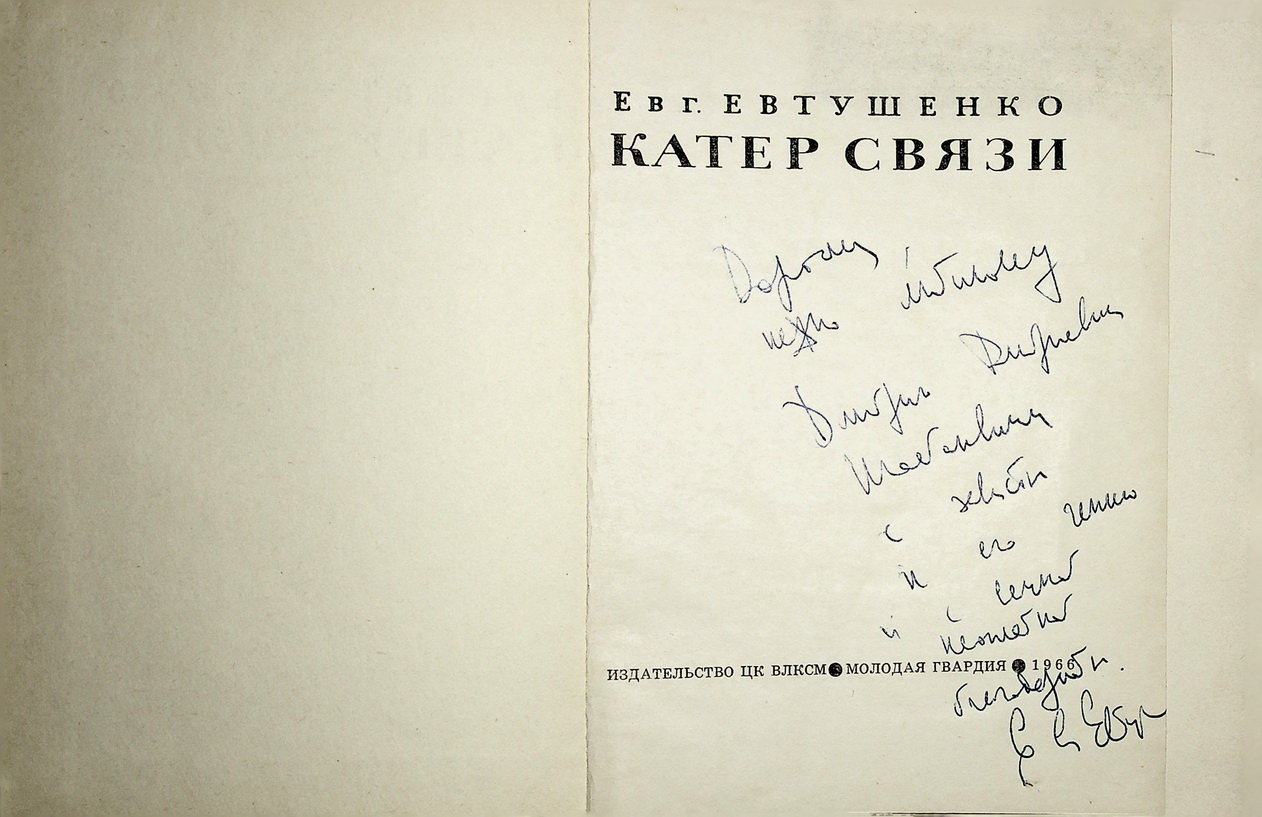 Евг. ЕВТУШЕНКО
КАТЕР СВЯЗИ
Дорогому
нежно любимому
Дмитрию Дмитриевичу
Шостаковичу
с
и его гению
и с вечной
неоплатной
ИЗДАТЕЛЬСТВО ЦК ВЛКСМ ● МОЛОДАЯ ГВАРДИЯ ● 1966
благодарностью.